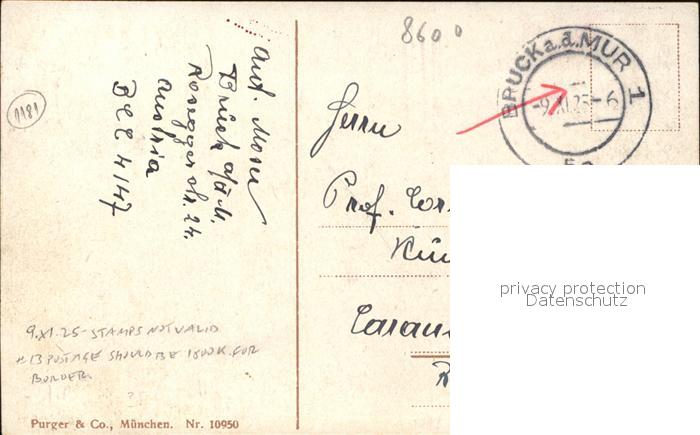 8600
BRUCK a. d. MUR 1
-9.XI.25-6
5a
1181
Ant. Moser
Bruck a/d M.
Roseggerstr. 24.
Austria
BCC 4147
Herrn
Prof.
Purger & Co., München. Nr. 10950
9.XI.25 - STAMPS NOT VALID
POSTAGE SHOULD BE 1800K. FOR
BORDER
?
privacy protection
Datenschutz